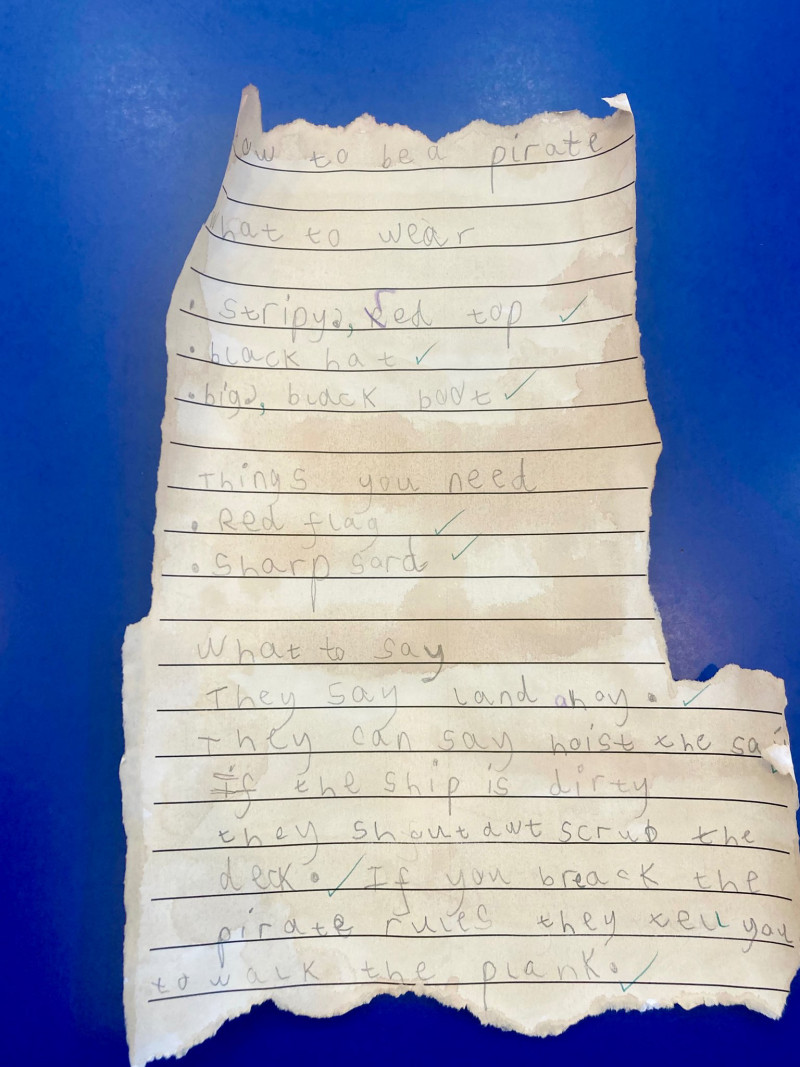 ow to be a pirate
hat to wear
• Stripy, red top ✓
• black hat ✓
• big, black boot ✓
Things you need
• Red flag ✓
• Sharp sord ✓
What to say
They say land ahoy. ✓
They can say hoist the sai
If the ship is dirty
they shout awt scrub the
deck. ✓ If you breack the
pirate rules they tell you
to walk the plank. ✓